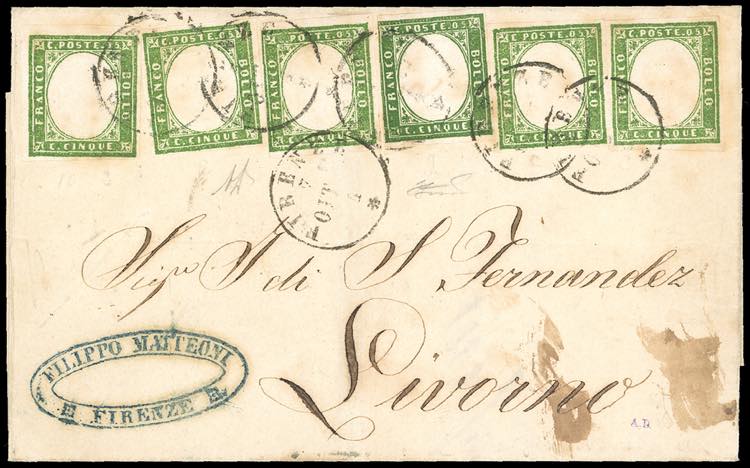 C. POSTE. 05 FRANCO BOLLO C. CINQUE
C. POSTE. 05 FRANCO BOLLO C. CINQUE
C. POSTE. 05 FRANCO BOLLO C. CINQUE
C. POSTE. 05 FRANCO BOLLO C. CINQUE
C. POSTE. 05 FRANCO BOLLO C. CINQUE
C. POSTE. 05 FRANCO BOLLO C. CINQUE
Sigr. J di S. Fernandez
Livorno
FILIPPO MATTEONI
FIRENZE
A.D.